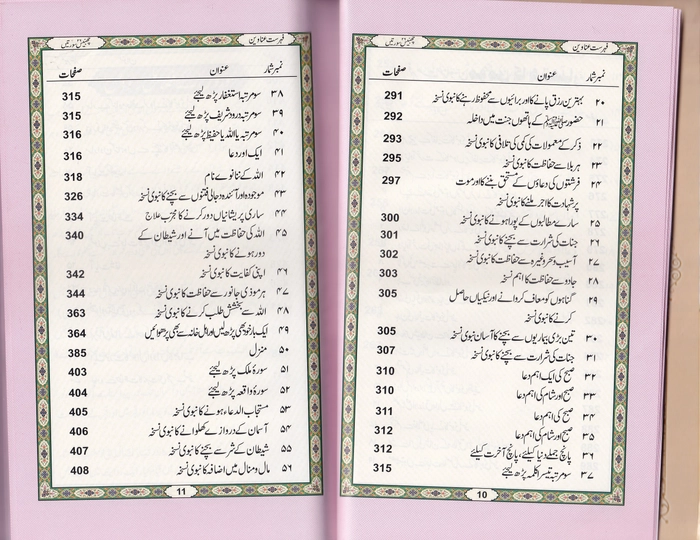 فہرست عناوین
چھبیس سورتیں
نمبر شمار عنوان صفحات
۲۰ بہترین رزق پانے کا اور برائیوں سے محفوظ رہنے کا نبوی نسخہ 291
۲۱ حضور ﷺ کے ہاتھوں جنت میں داخلہ 292
۲۲ ذکر کے معمولات کی کمی کی تلافی کا نبوی نسخہ 293
۲۳ ہر بلا سے حفاظت کا نبوی نسخہ 295
۲۴ فرشتوں کی دعاؤں کے مستحق بننے کا اور موت 297
پر شہادت کا اجر ملنے کا نبوی نسخہ
۲۵ سارے مطالبوں کے پورا ہونے کا نبوی نسخہ 300
۲۶ جنات کی شرارت سے بچنے کا نبوی نسخہ 301
۲۷ آسیب وسحر وغیرہ سے حفاظت کا نبوی نسخہ 302
۲۸ جادو سے حفاظت کا اہم نسخہ 303
۲۹ گناہوں کو معاف کروانے اور نیکیاں حاصل 305
کرنے کا نبوی نسخہ
۳۰ تین بڑی بیماریوں سے بچنے کا آسان نبوی نسخہ 305
۳۱ جنات کی شرارت سے بچنے کا نبوی نسخہ 307
۳۲ صبح کی ایک اہم دعا 310
۳۳ صبح اور شام کی اہم دعا 310
۳۴ صبح کی اہم دعا 311
۳۵ صبح اور شام کی اہم دعا 312
۳۶ پانچ جملے دنیا کیلئے، پانچ آخرت کیلئے 312
۳۷ سو مرتبہ تیسرا کلمہ پڑھ لیجئے 315
10
فہرست عناوین
چھبیس سورتیں
نمبر شمار عنوان صفحات
۳۸ سو مرتبہ استغفار پڑھ لیجئے 315
۳۹ سو مرتبہ درود شریف پڑھ لیجئے 315
۴۰ سو مرتبہ یا اللہ یا حفیظ پڑھ لیجئے 316
۴۱ ایک اور دعا 316
۴۲ اللہ کے ننانوے نام 318
۴۳ موجودہ اور آئندہ دجالی فتنوں سے بچنے کا نبوی نسخہ 326
۴۴ ساری پریشانیاں دور کرنے کا مجرب علاج 334
۴۵ اللہ کی حفاظت میں آنے اور شیطان کے 340
دور ہونے کا نبوی نسخہ
۴۶ اپنی کفایت کا نبوی نسخہ 342
۴۷ ہر موذی جانور سے حفاظت کا نبوی نسخہ 344
۴۸ اللہ سے بخشش طلب کرنے کا نبوی نسخہ 363
۴۹ ایک بار خود بھی پڑھ لیں اور اہل خانہ سے بھی پڑھوائیں 364
۵۰ منزل 385
۵۱ سورۂ ملک پڑھ لیجئے 403
۵۲ سورۂ واقعہ پڑھ لیجئے 404
۵۳ مستجاب الدعاء ہونے کا نبوی نسخہ 405
۵۴ آسمان کے دروازے کھلوانے کا نبوی نسخہ 406
۵۵ شیطان کے شر سے بچنے کا نبوی نسخہ 407
۵۶ مال و منال میں اضافہ کا نبوی نسخہ 408
11